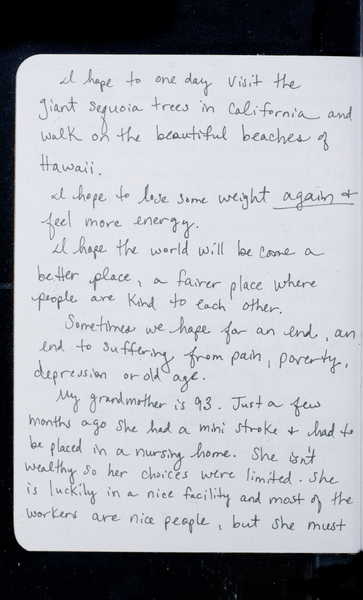 I hope to one day visit the
giant sequoia trees in California and
walk on the beautiful beaches of
Hawaii.
I hope to lose some weight again &
feel more energy.
I hope the world will become a
better place, a fairer place where
people are kind to each other.
Sometimes we hope for an end, an
end to suffering from pain, poverty,
depression or old age.
My grandmother is 93. Just a few
months ago she had a mini stroke & had to
be placed in a nursing home. She isn't
wealthy so her choices were limited. She
is luckily in a nice facility and most of the
workers are nice people, but she must